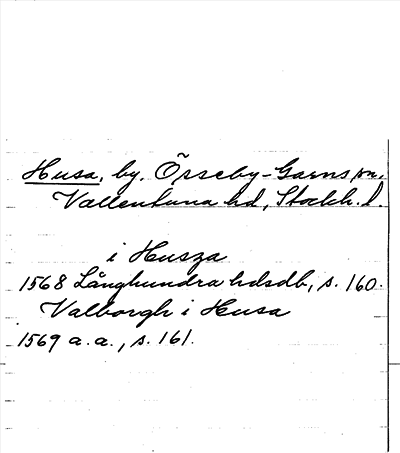 Husa, by. Össeby-Garns sn.
Vallentuna hd, Stockh. l.
i Husza
1568 Långhundra hdsdb, s. 160.
Valborgh i Husa
1569 a. a., s. 161.